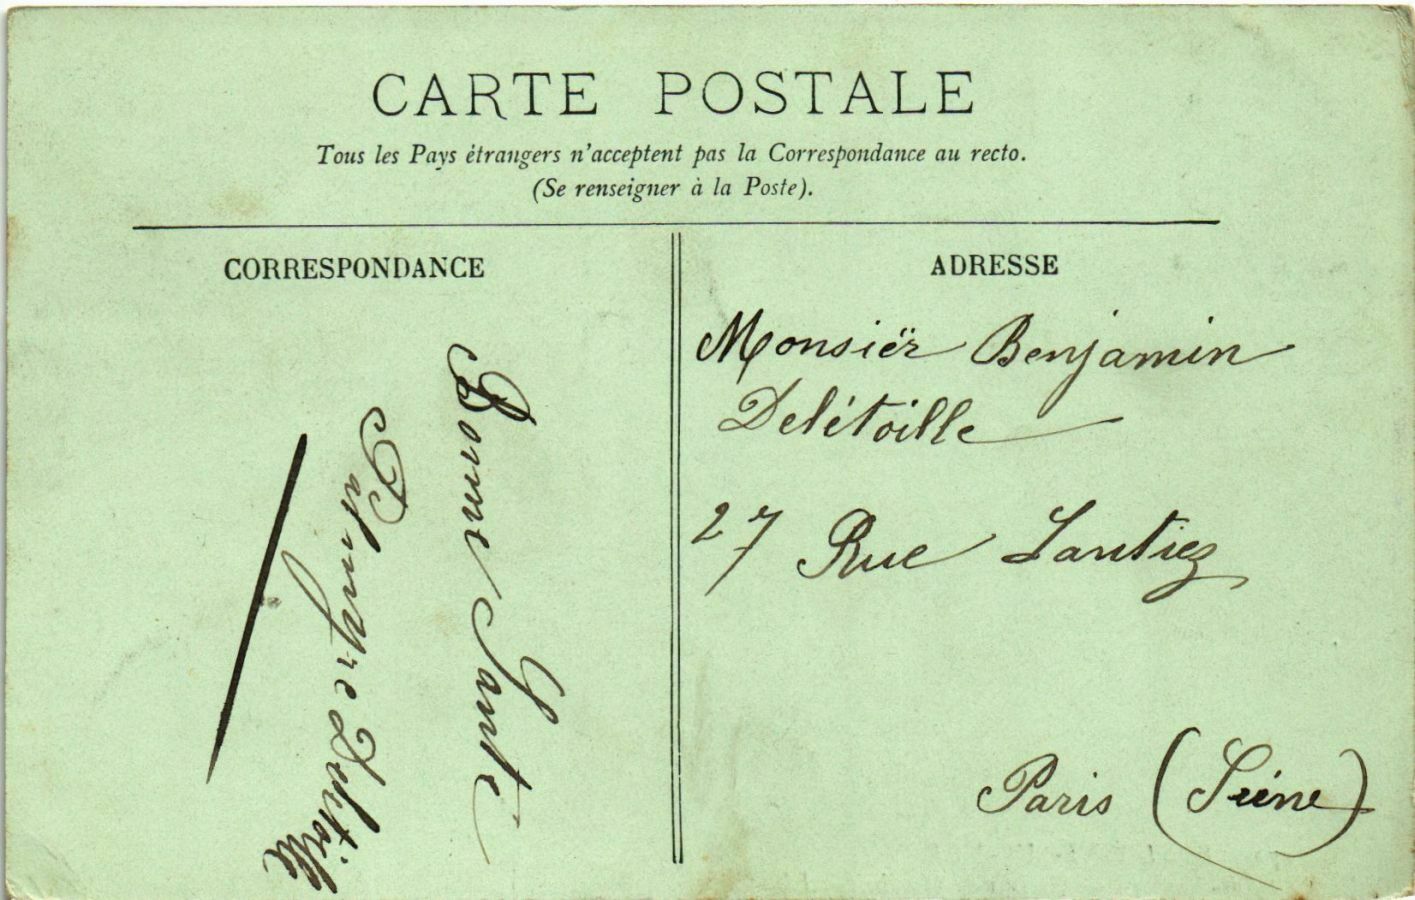 CARTE POSTALE
Tous les Pays étrangers n'acceptent pas la Correspondance au recto.
(Se renseigner à la Poste).
CORRESPONDANCE
Bonne Santé
Palmyre Delétoille
ADRESSE
Monsiër Benjamin
Delétoille
27 Rue Lantiez
Paris (Seine)